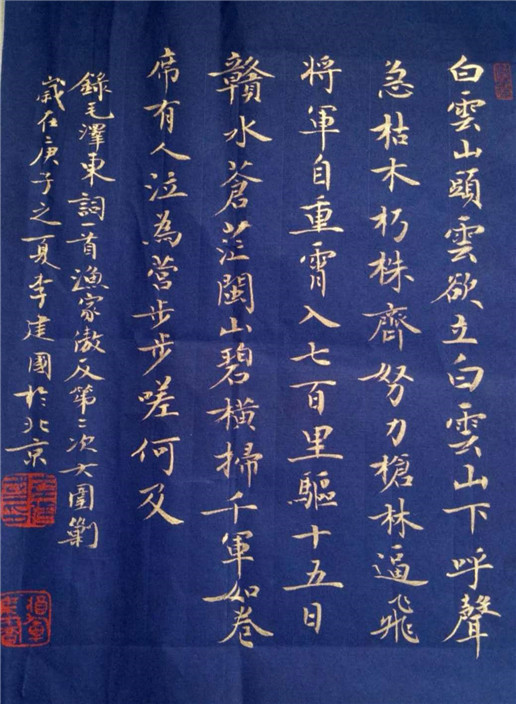 白雲山頭雲欲立白雲山下呼聲
急枯木朽株齊努力槍林逼飛
將軍自重霄入七百里驅十五日
贛水蒼茫閩山碧橫掃千軍如卷
席有人泣為營步步嗟何及
錄毛澤東詞一首漁家傲反第二次大圍剿
歲在庚子之夏李建國於北京